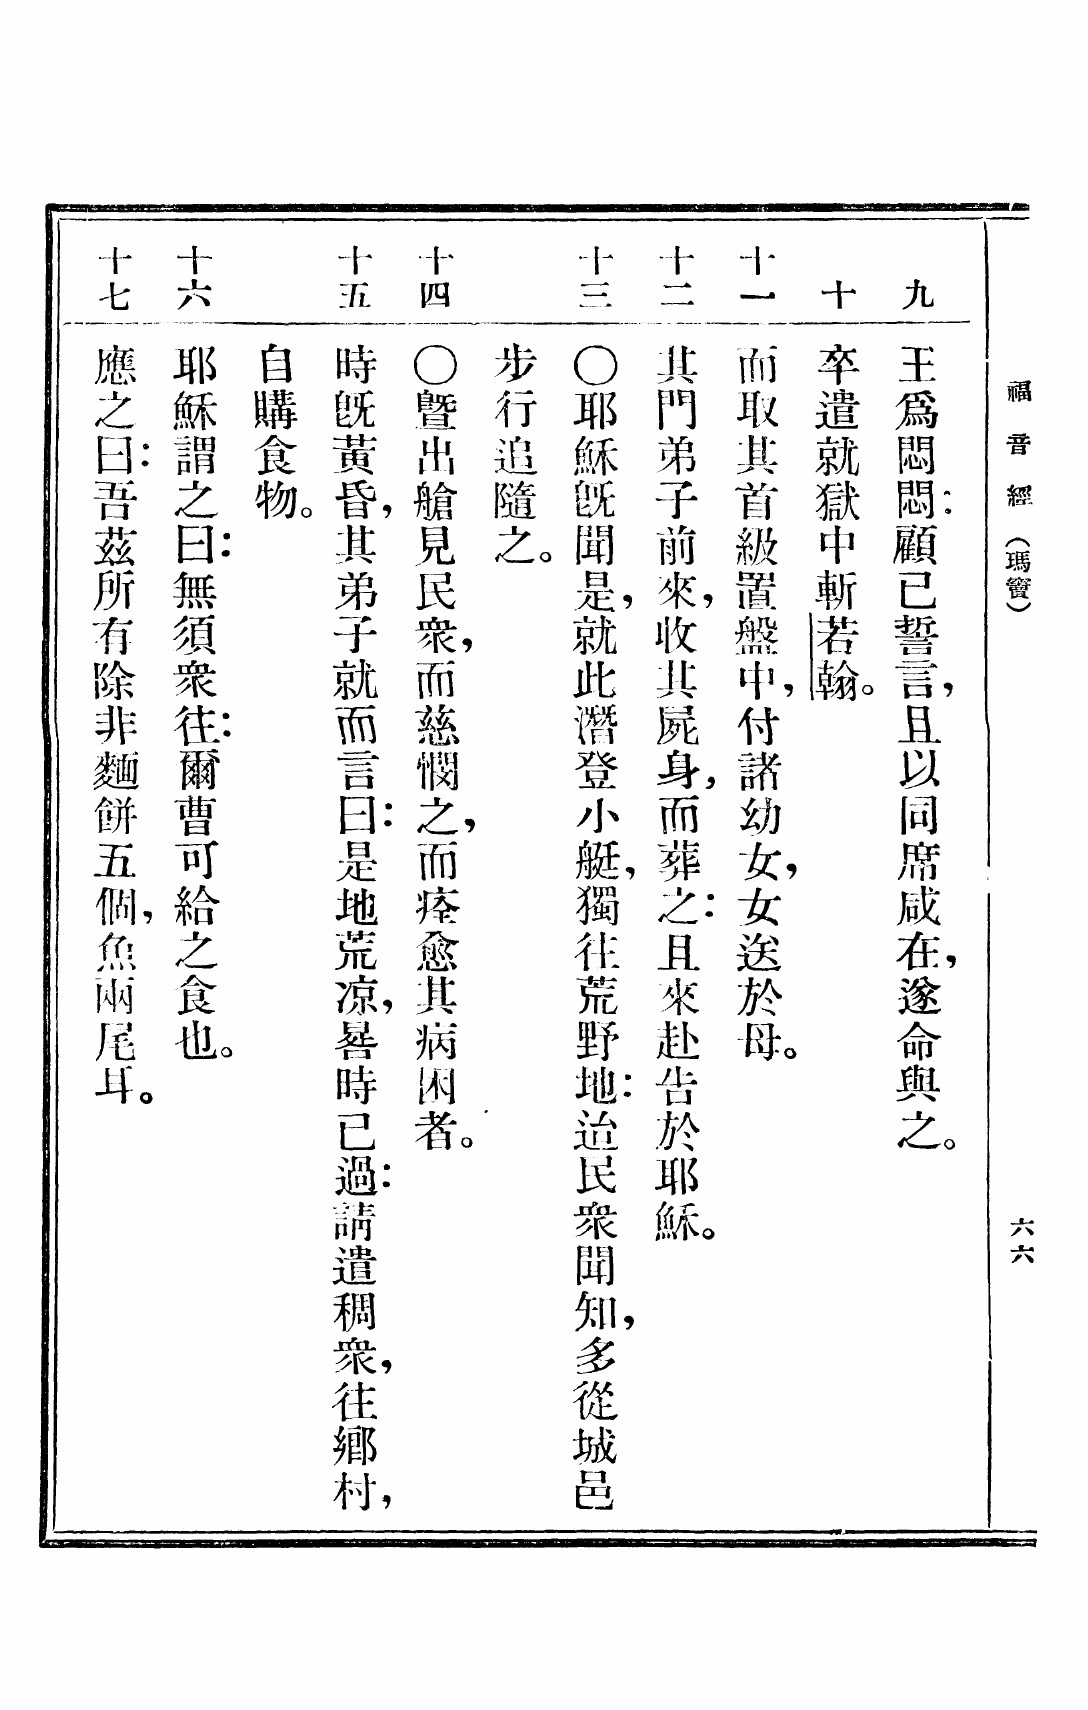 福音經（瑪竇）
六六
九 王爲悶悶：顧已誓言，且以同席咸在，遂命與之。
十 卒遣就獄中斬若翰。
十一 而取其首級置盤中，付諸幼女，女送於母。
十二 其門弟子前來，收其屍身，而葬之：且來赴告於耶穌。
十三 〇耶穌旣聞是，就此潛登小艇，獨往荒野地：迨民衆聞知，多從城邑
步行追隨之。
十四 〇曁出艙見民衆，而慈憫之，而痊愈其病困者。
十五 時旣黃昏，其弟子就而言曰：是地荒凉，晷時已過：請遣稠衆，往鄉村，
自購食物。
十六 耶穌謂之曰：無須衆往：爾曹可給之食也。
十七 應之曰：吾茲所有除非麵餅五個，魚兩尾耳。